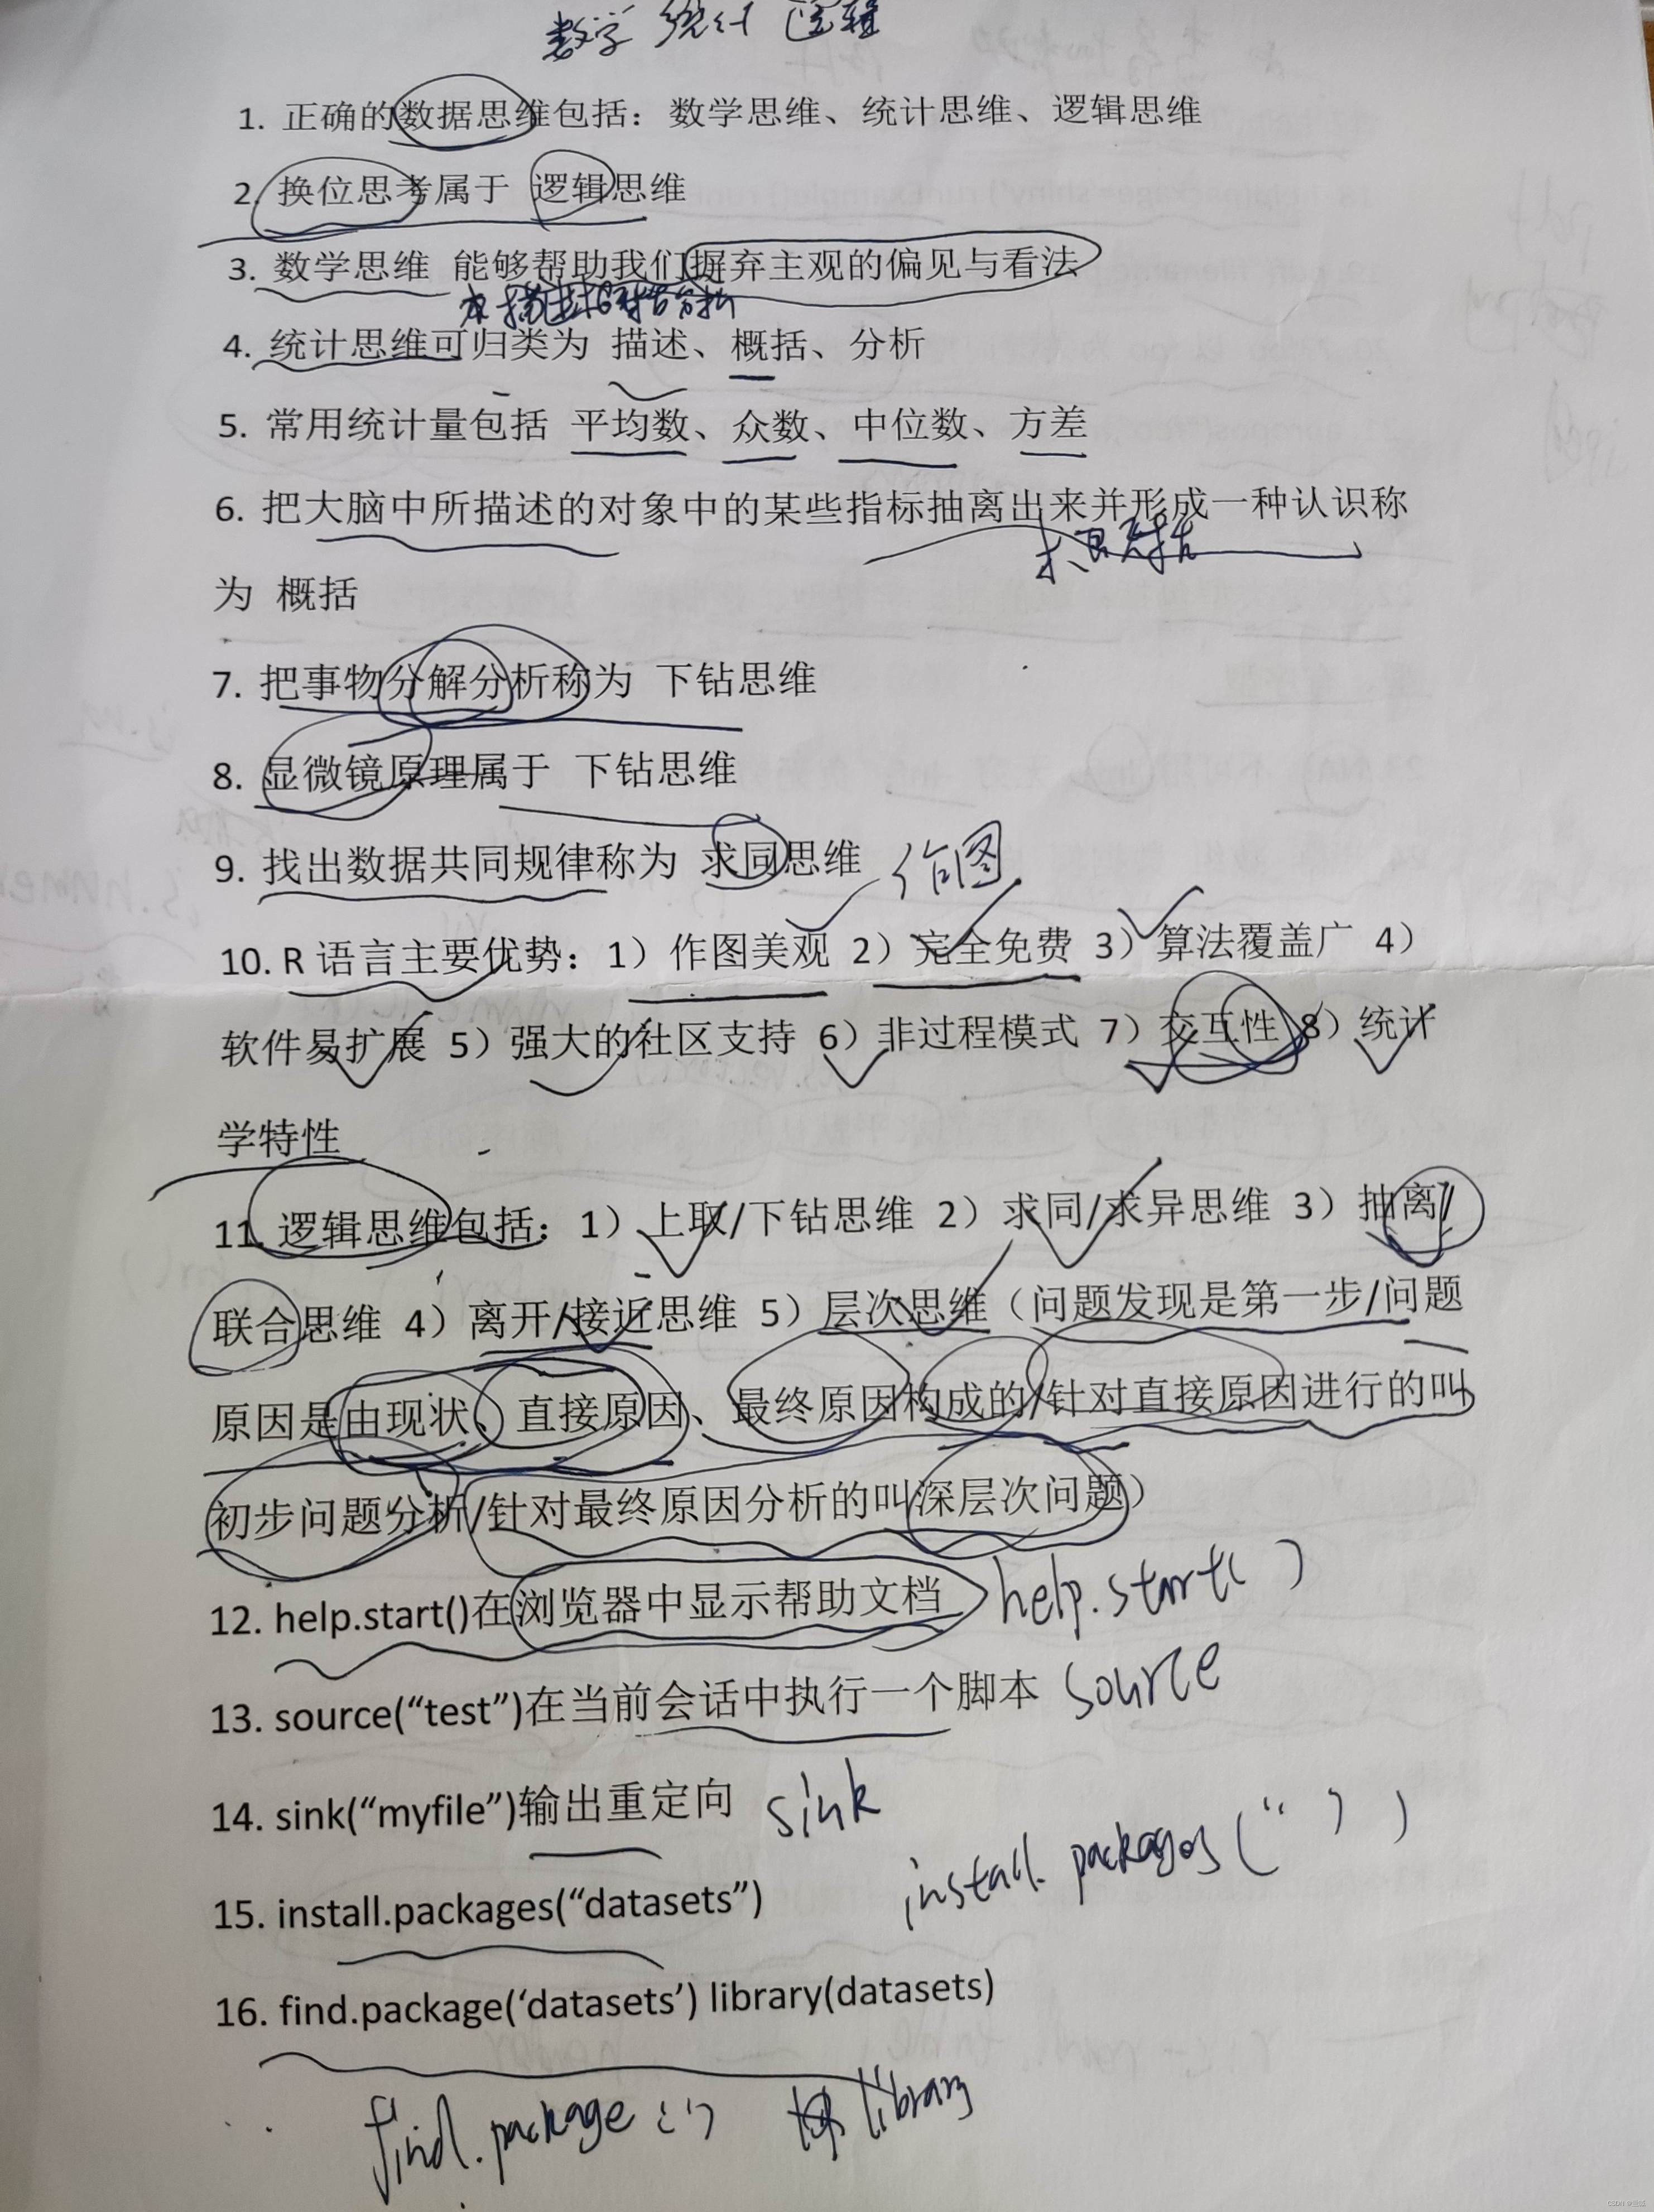 数学 统计 逻辑
1. 正确的数据思维包括：数学思维、统计思维、逻辑思维
2. 换位思考属于 逻辑思维
3. 数学思维 能够帮助我们摒弃主观的偏见与看法
4. 统计思维可归类为 描述、概括、分析
5. 常用统计量包括 平均数、众数、中位数、方差
6. 把大脑中所描述的对象中的某些指标抽离出来并形成一种认识称
为 概括
7. 把事物分解分析称为 下钻思维
8. 显微镜原理属于 下钻思维
9. 找出数据共同规律称为 求同思维 作图
10. R 语言主要优势：1）作图美观 2）完全免费 3）算法覆盖广 4）
软件易扩展 5）强大的社区支持 6）非过程模式 7）交互性 8）统计
学特性
11. 逻辑思维包括：1）上取/下钻思维 2）求同/求异思维 3）抽离/
联合思维 4）离开/接近思维 5）层次思维（问题发现是第一步/问题
原因是由现状、直接原因、最终原因构成的/针对直接原因进行的叫
初步问题分析/针对最终原因分析的叫深层次问题）
12. help.start()在浏览器中显示帮助文档 help.start( )
13. source(“test”)在当前会话中执行一个脚本 source
14. sink(“myfile”)输出重定向 sink
15. install.packages(“datasets”) install.packages(“ ”)
16. find.package(‘datasets’) library(datasets)
find.package(‘’) library
CSDN